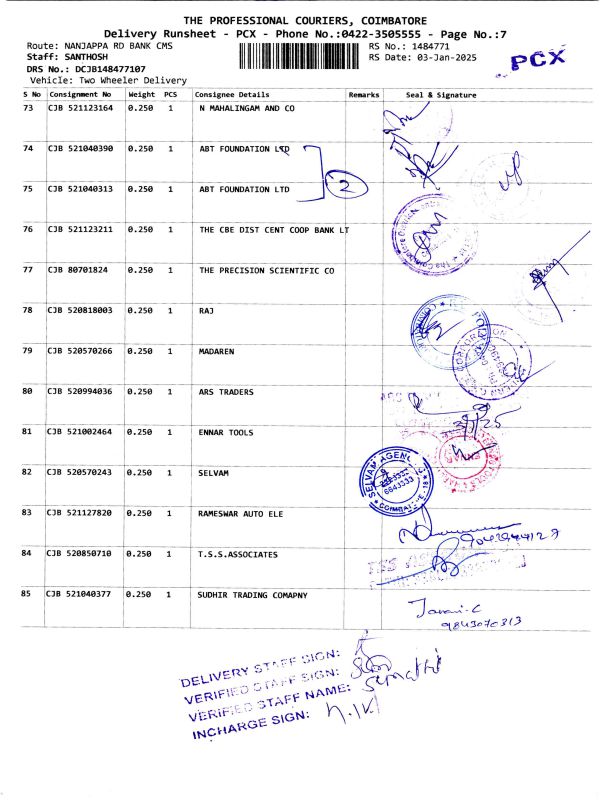 THE PROFESSIONAL COURIERS, COIMBATORE
Delivery Runsheet - PCX - Phone No.:0422-3505555 - Page No.:7
Route: NANJAPPA RD BANK CMS RS No.: 1484771
Staff: SANTHOSH RS Date: 03-Jan-2025
PCX
DRS No.: DCJB148477107
Vehicle: Two Wheeler Delivery
S No Consignment No Weight PCS Consignee Details Remarks Seal & Signature
73 CJB 521123164 0.250 1 N MAHALINGAM AND CO
74 CJB 521040390 0.250 1 ABT FOUNDATION LTD
2
75 CJB 521040313 0.250 1 ABT FOUNDATION LTD
76 CJB 521123211 0.250 1 THE CBE DIST CENT COOP BANK LT
77 CJB 80701824 0.250 1 THE PRECISION SCIENTIFIC CO
78 CJB 520818003 0.250 1 RAJ
79 CJB 520570266 0.250 1 MADAREN
80 CJB 520994036 0.250 1 ARS TRADERS
81 CJB 521002464 0.250 1 ENNAR TOOLS
82 CJB 520570243 0.250 1 SELVAM
SELVAM AGENC
6643333
COIMBATORE - 18
83 CJB 521127820 0.250 1 RAMESWAR AUTO ELE
84 CJB 520850710 0.250 1 T.S.S.ASSOCIATES
TSS
85 CJB 521040377 0.250 1 SUDHIR TRADING COMAPNY
9843070313
DELIVERY STAFF SIGN:
VERIFIED STAFF SIGN:
VERIFIED STAFF NAME:
INCHARGE SIGN: